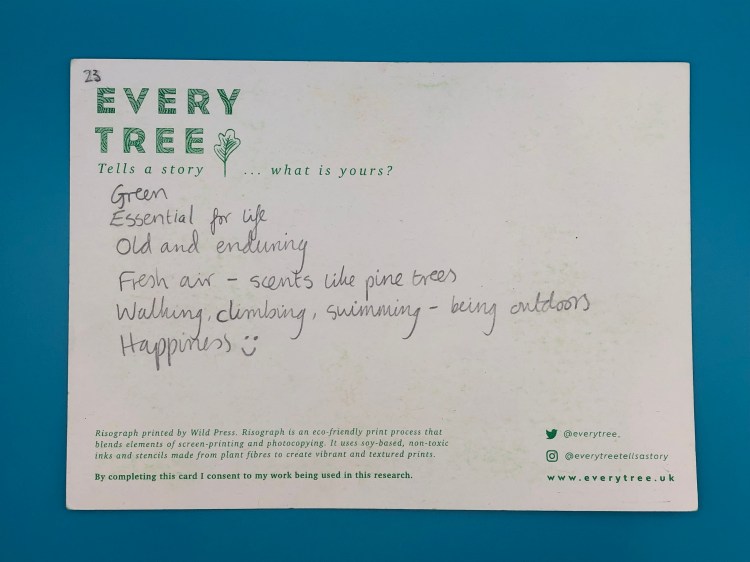 23
EVERY
TREE
Tells a story ... what is yours?
Green
Essential for life
Old and enduring
Fresh air – scents like pine trees
Walking, climbing, swimming – being outdoors
Happiness :)
Risograph printed by Wild Press. Risograph is an eco-friendly print process that
blends elements of screen-printing and photocopying. It uses soy-based, non-toxic
inks and stencils made from plant fibres to create vibrant and textured prints.
By completing this card I consent to my work being used in this research.
@everytree_
@everytreetellsastory
www.everytree.uk